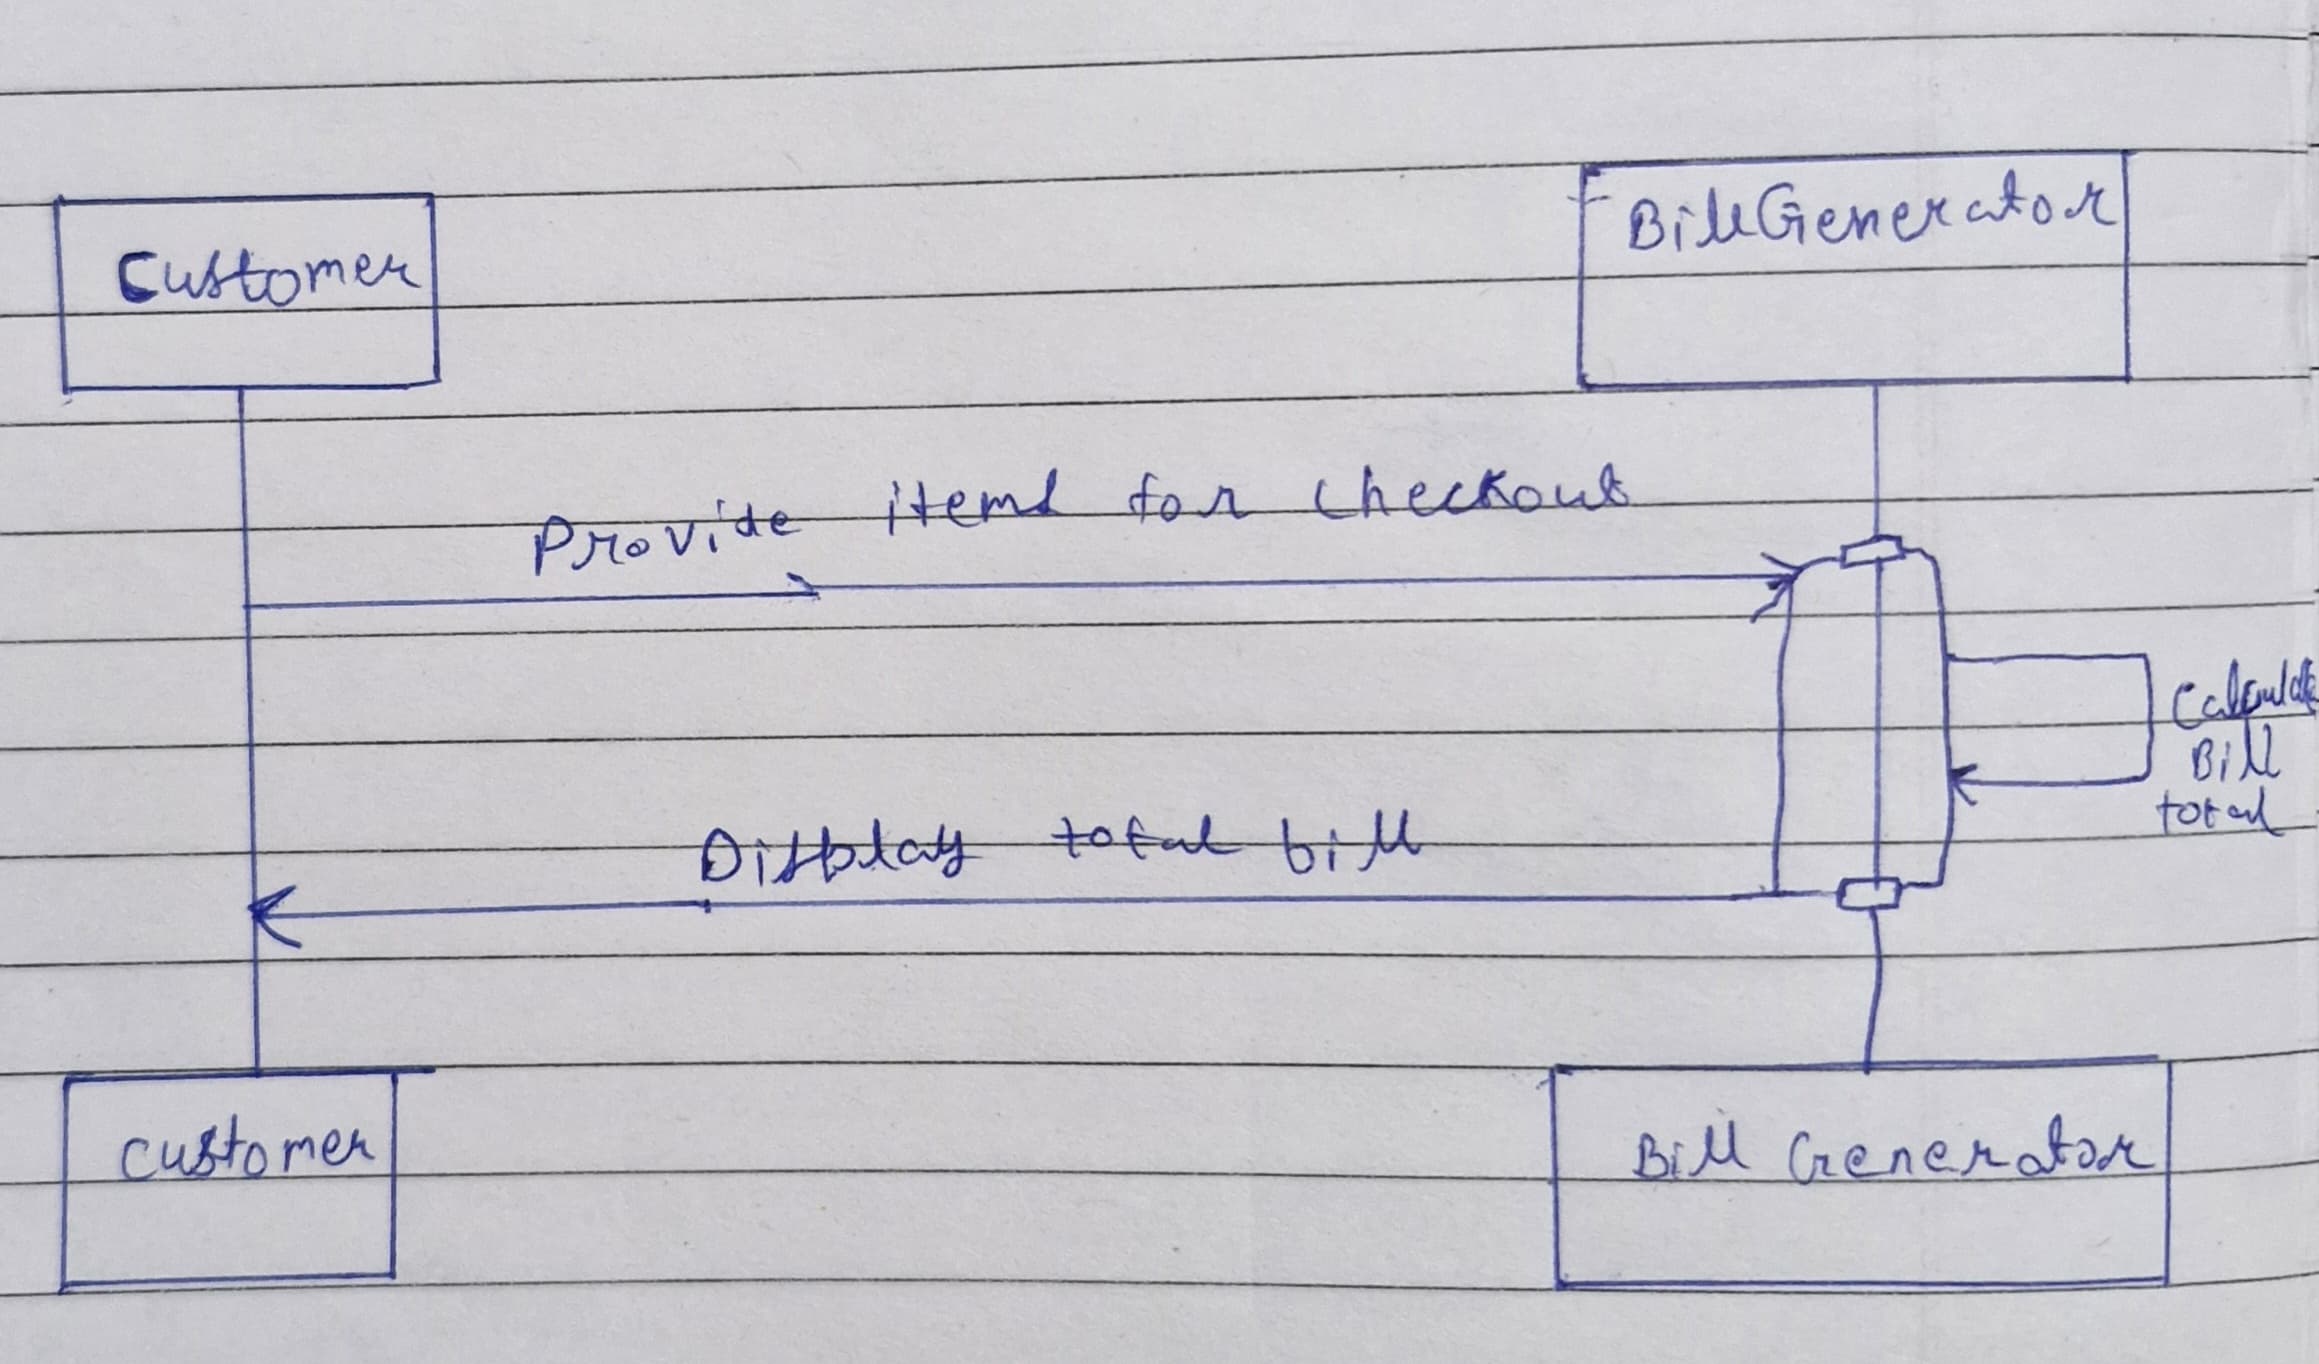 Customer
BillGenerator
Provide items for checkout
Calculate
Bill
total
Display total bill
customer
Bill Generator